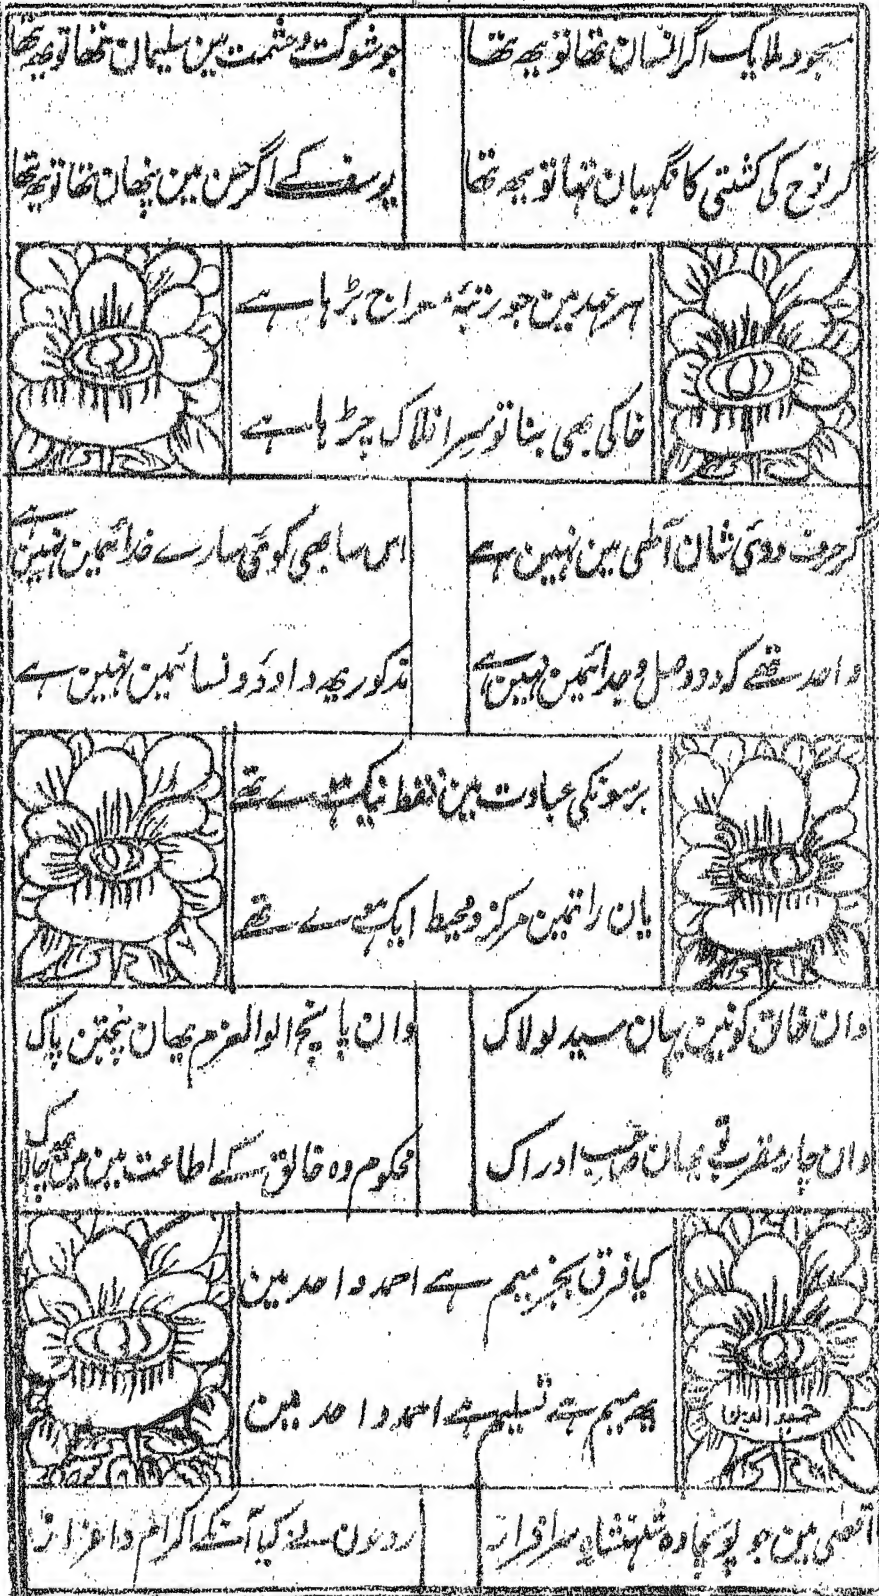 مسجود ملایک اگر انسان تھا تو یہ تھا
جو شوکت و حشمت مین سلیمان تھا تو یہ تھا
گر نوح کی کشتی کا نگہبان تہا تو یہ تھا
یوسف کے اگر حسن مین پنھان تھا تو یہ تھا
ہر عہد مین جو رتبۂ معراج بڑہا ہے
خاکی بھی بنا تو سر افلاک چڑہا ہے
گر حرف دوئی شان مین نہین ہے
اس سا بھی کوئی سارے خدائمین نہین ہے
واحد تھے کہ دو وصل و جدائمین نہین ہے
مذکور یہ داؤد و نسائمین نہین ہے
برسونکی عبادت مین فقط نیک تھے
یان راتمین مرکز و محیط ایک تھے
وان خالق کونین یہان سید لولاک
وان پانچ اولوالعزم یھان پنجتن پاک
وان چار مقرب یھان صاحب ادراک
محکوم وہ خالق کے اطاعت مین
کیا فرق بجز میم ہے احمد و احد مین
یہ میم ہے تسلیم ہے احمد و احد مین
حمید الدین
اقصٰی مین جو پونچا وہ شہنشاہ سرافراز
روحون نے کیا آنکے اکرام و اعزاز